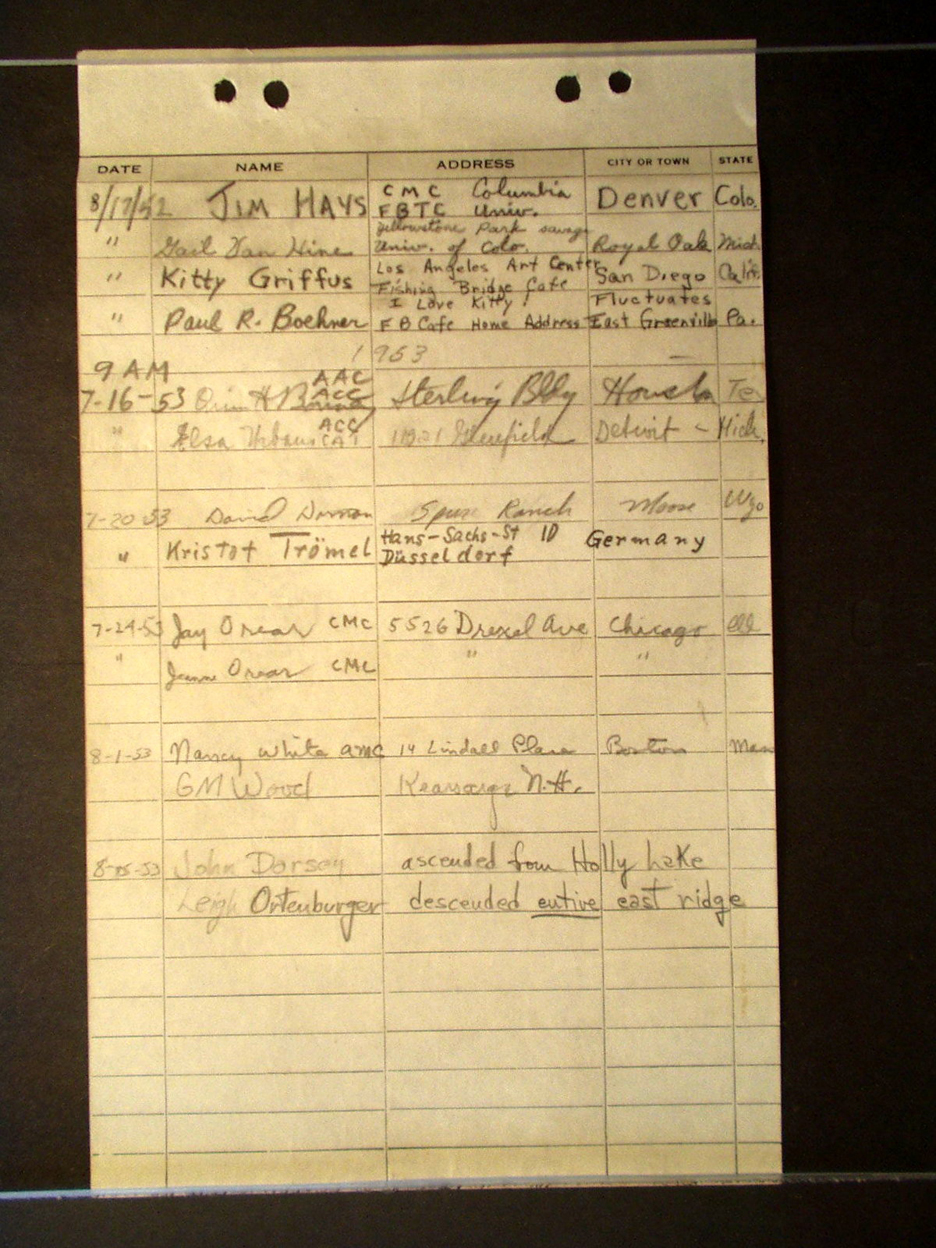 DATE NAME ADDRESS CITY OR TOWN STATE
8/17/52 JIM HAYS CMC Columbia Denver Colo.
FBTC Univ.
Yellowstone Park savage
" Gail Van Hine Univ. of Colo. Royal Oak Mich
" Kitty Griffus Los Angeles Art Center San Diego Calif.
Fishing Bridge Cafe
I Love Kitty! Fluctuates
" Paul R. Boehner F B Cafe Home Address East Greenville Pa.
1953
9 AM AAC
7-16-53 H ACC Sterling Bldg Houston Tex
" Elsa ACC Detroit Mich.
CAI
7-20-53 David Dornan Spur Ranch Moose Wyo
" Kristof Trömel Hans-Sachs-St 10 Germany
Düsseldorf
7-24-53 Jay Orear CMC 5526 Drexel Ave Chicago Ill
" Jeanne Orear CMC " "
8-1-53 Nancy White AMC 14 Lindall Place Boston Mass
GM Wood Kearsarge N.H.
53 John Dorsey ascended from Holly Lake
Leigh Ortenburger descended entire east ridge